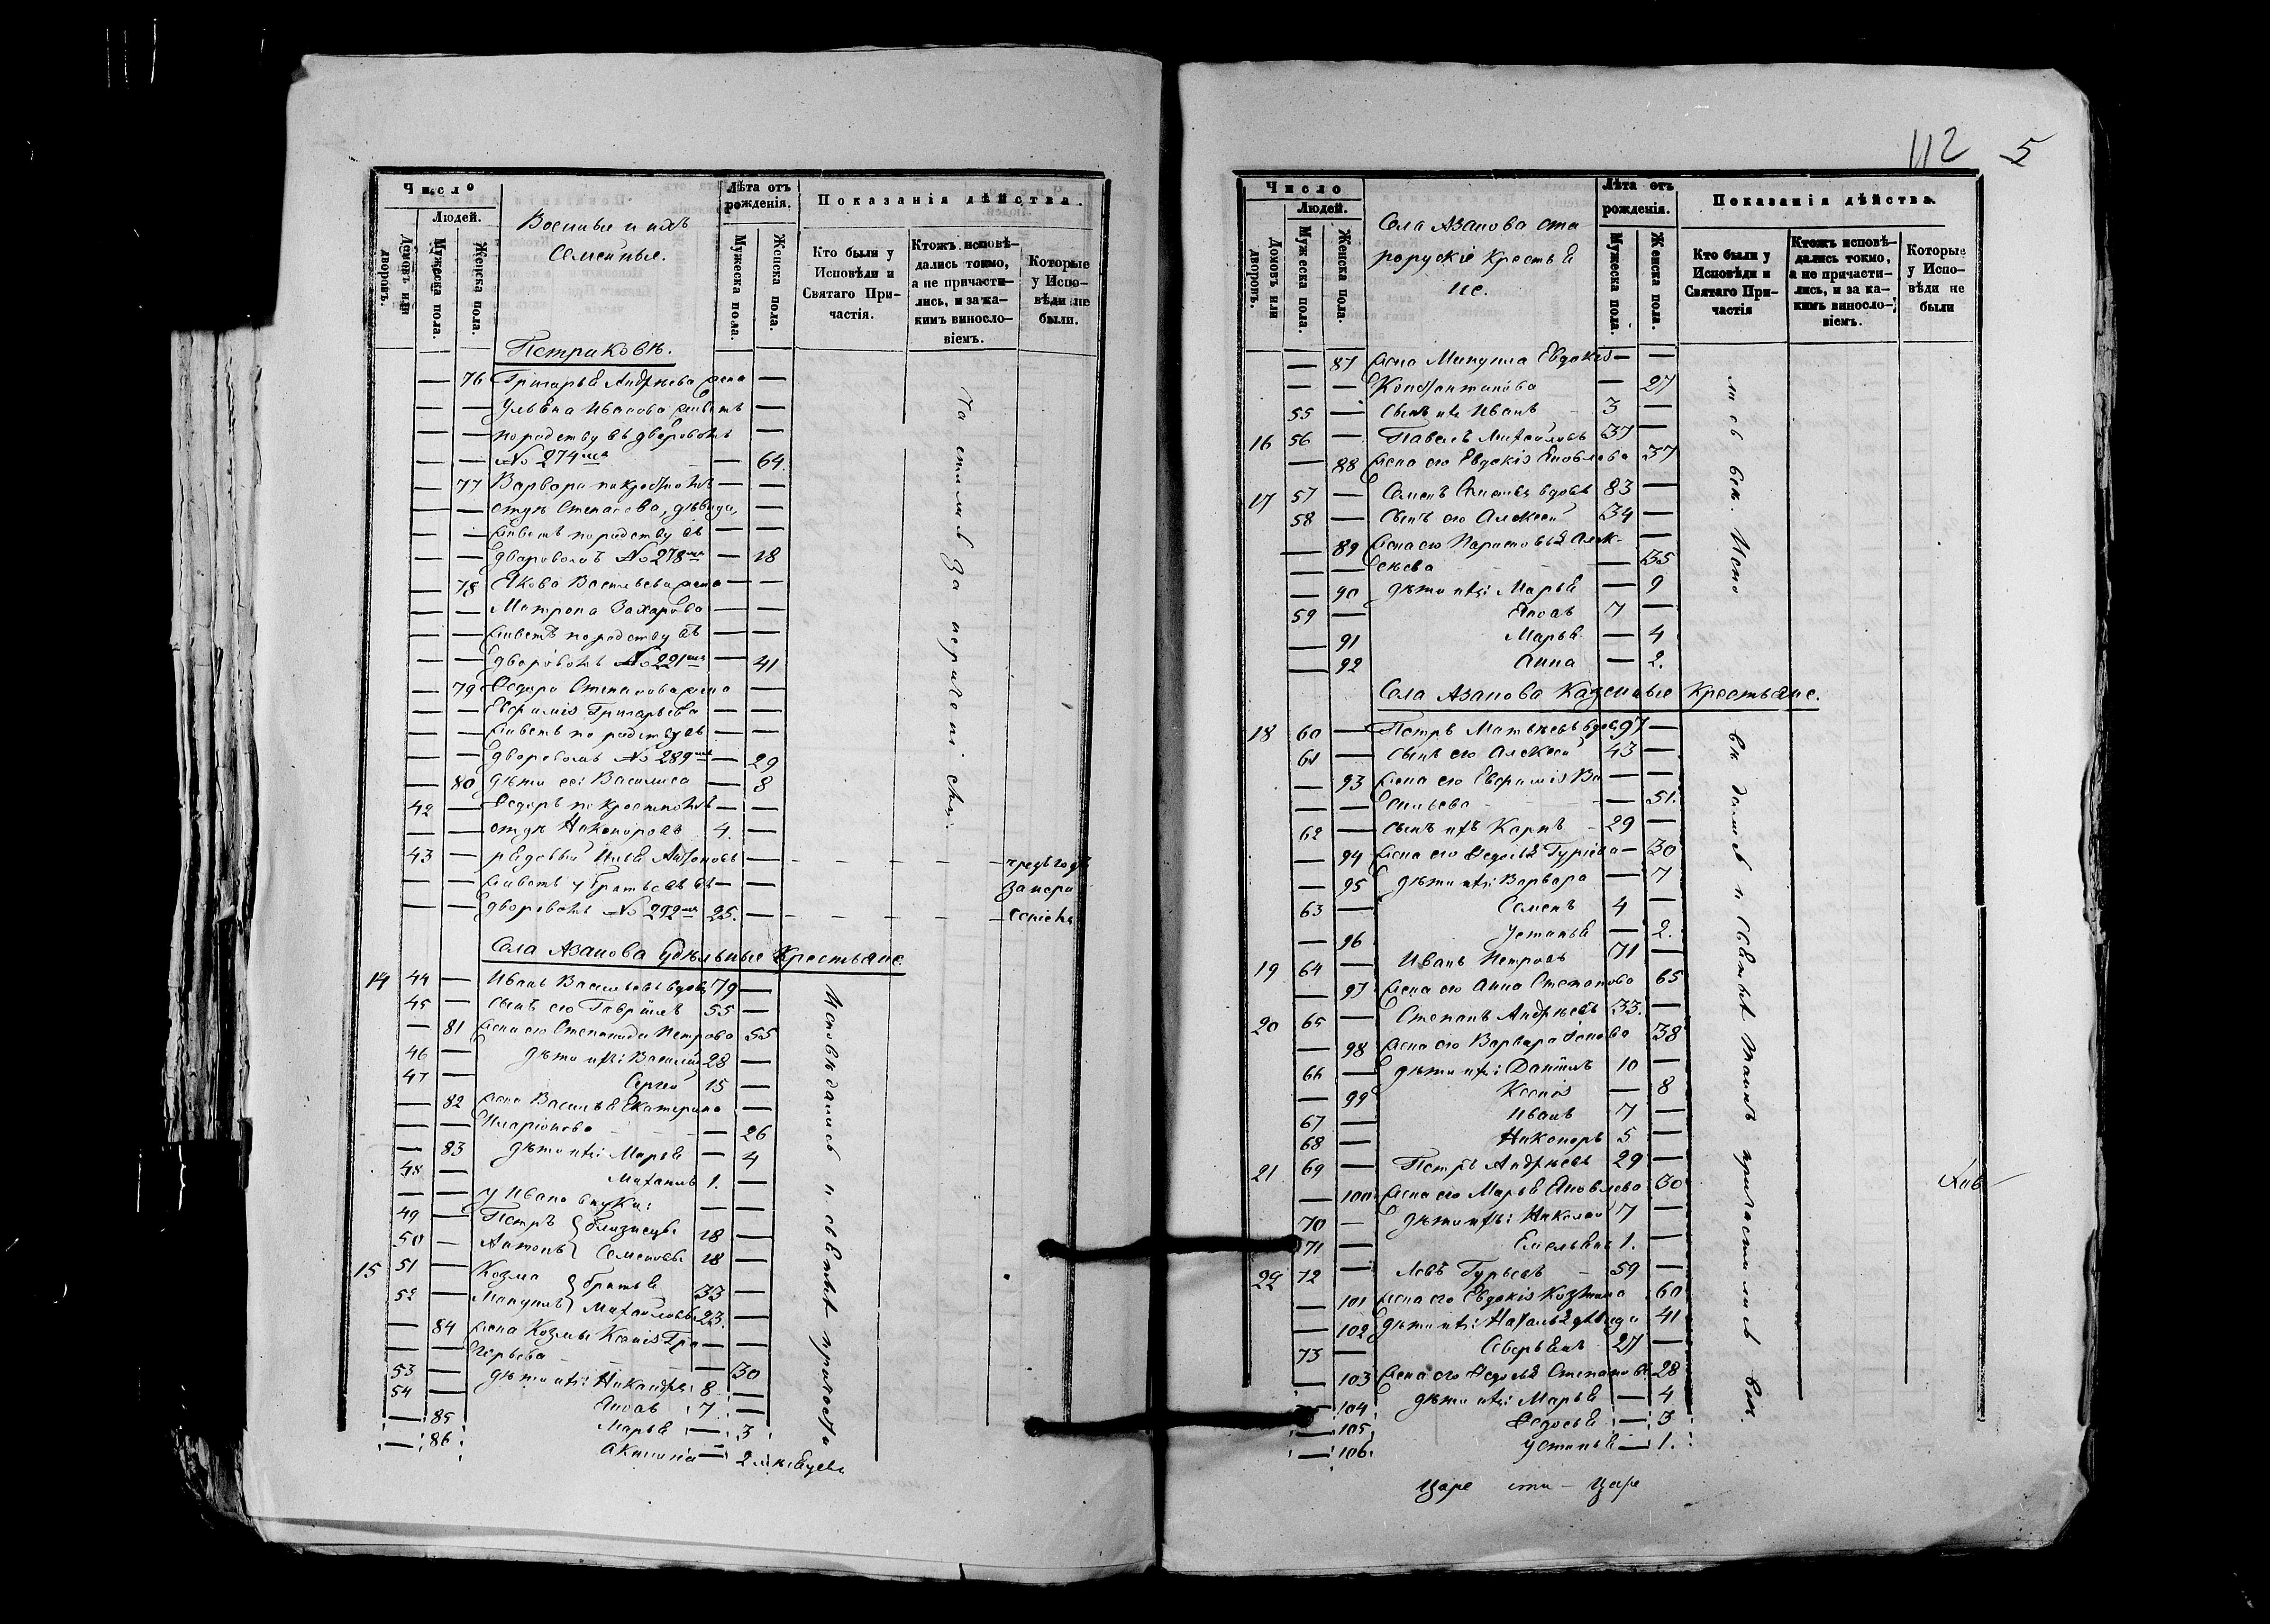 112 5
Число
Людей.
Домовъ или дворовъ.
Мужеска пола.
Женска пола.
Военные и ихъ
Семейные.
Лѣта отъ рожденія.
Мужеска пола.
Женска пола.
Показанія дѣйства.
Кто были у Исповѣди и Святаго Причастія.
Ктожъ исповѣдались токмо, а не причастились, и за какимъ винословіемъ.
Которые у Исповѣди не были.
— 76 Григорья Андрѣева жена —
— — Ульяна Иванова живетъ —
— — по родству въ дворовомъ —
— — № 274мъ — 64.
— 77 Варвара — —
— — отцѣ Степанова, дѣвица, —
— — живетъ по родству въ — —
— — дворовомъ № 278мъ — 18
— 78 Якова Васильева жена — —
— — Матрона Захарова — —
— — живетъ по родству въ — —
— — дворовомъ № 291мъ — 41
— 79 Федора Степанова жена —
— — Евфимія Григорьева —
— — живетъ по родству въ — —
— — дворовомъ № 289мъ — 29
— 80 дѣти ея: Василиса — 8
42 — Федоръ по крестному — —
— — отцѣ Никоноровъ 4. —
43 — рядовый Илья Антоновъ —
— — живетъ у братьевъ въ — —
— — дворовомъ № 292мъ 25. —
Села Азанова Удѣльные Крестьяне.
14 44 — Иванъ Васильевъ вдовъ 79 —
45 — сынъ его Гавріилъ 55 —
— 81 жена его Степанида Петрова 55
46 — дѣти ихъ: Василій 28 —
47 — Сергей 15 —
— 82 жена Василья Екатерина —
— — Иларіонова — 26
— 83 дѣти ихъ: Марья — 4
48 — Михаилъ 1. —
— — у Ивана внуки: — —
49 — Петръ близнецы 18 —
50 — Антонъ Семеновы 18 —
15 51 — Козма братья 33 —
52 — Мануилъ Михайловы 23. —
— 84 жена Козмы Ксенія Гри — —
— — горьева — 30
53 — дѣти ихъ: Никандръ 8 —
54 — Яковъ 7 —
— 85 Марья — 3
— 86 Акилина — 2
Исповѣдались и святыхъ причаст
Число
Людей.
Домовъ или дворовъ.
Мужеска пола.
Женска пола.
Села Азанова ста
рорускіе Крестья
не.
Лѣта отъ рожденія.
Мужеска пола.
Женска пола.
Показанія дѣйства.
Кто были у Исповѣди и Святаго Причастія
Ктожъ исповѣдались токмо, а не причастились, и за какимъ винословіемъ.
Которые у Исповѣди не были
— 87 жена Мануила Евдокія — —
— — Константинова — 27
55 — сынъ ихъ Иванъ 3 —
16 56 — Павелъ Михайловъ 37 —
— 88 жена его Евдокія Яковлева 37
17 57 — Семенъ вдовъ 83 —
58 — сынъ его Алексей 34 —
— 89 жена его Парасковья Алек- —
— — сеева — 35
— 90 дѣти ихъ: Марья — 9
59 — Яковъ 7 —
— 91 Марья — 4
— 92 Анна — 2.
Села Азанова Казенные Крестьяне.
18 60 — Петръ Матвѣевъ вдовъ 97 —
61 — сынъ его Алексей 43 —
— 93 жена его Евфимія Ва — —
— — сильева — 51.
62 — сынъ ихъ Карпъ 29 —
— 94 жена его Федосья Гуріева — 30
— 95 дѣти ихъ: Варвара — 7
63 — Семенъ 4 —
— 96 Устинья — 2.
19 64 — Иванъ Петровъ 71 —
— 97 жена его Анна Степанова 65
20 65 — Степанъ Андрѣевъ 33. —
— 98 жена его Варвара 38
66 — дѣти ихъ: Даніилъ 10 —
— 99 Ксенія — 8
67 — Иванъ 7 —
68 — Никаноръ 5 —
21 69 — Петръ Андрѣевъ 29 —
— 100 жена его Марья Яковлева 30
70 — дѣти ихъ: Николай 7 —
71 — Емельянъ 1. —
22 72 — Левъ Гурьевъ 59 —
— 101 жена его Евдокія Козмина 60
— 102 дѣти ихъ: Наталья дѣвица 41
73 — Северьянъ 27 —
— 103 жена его Федосья Степанова 28
— 104 дѣти ихъ: Марья — 4
— 105 Федосья — 3
— 106 Устинья — 1.